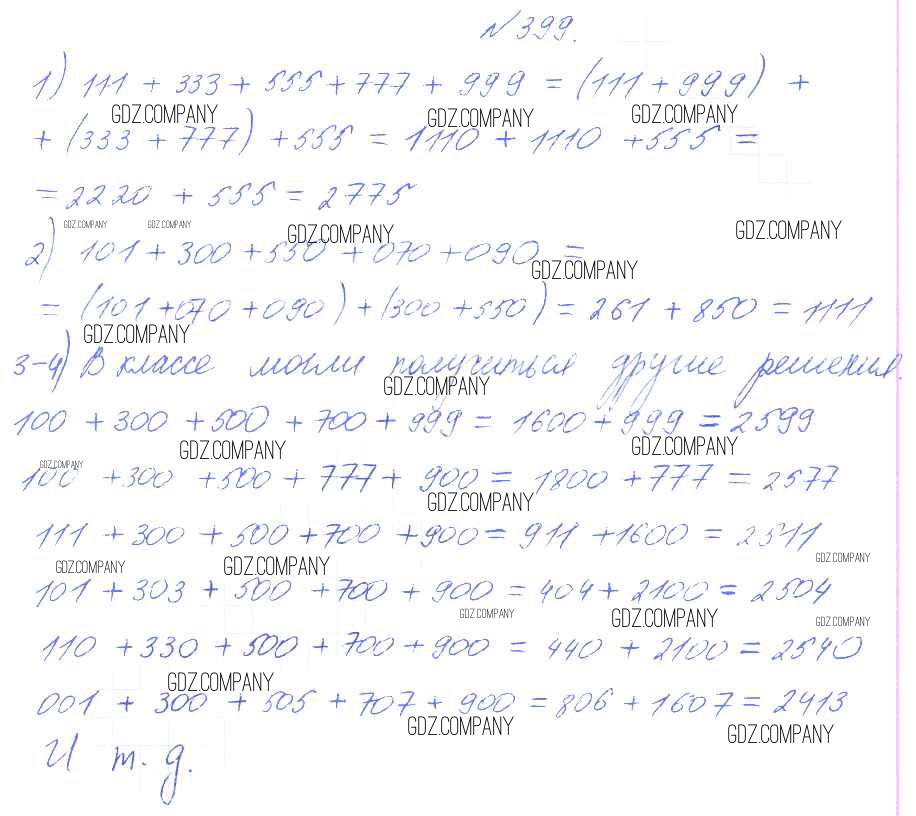 №399.
1) 111 + 333 + 555 + 777 + 999 = (111 + 999) +
GDZ.COMPANY GDZ.COMPANY GDZ.COMPANY
+ (333 + 777) + 555 = 1110 + 1110 + 555 =
= 2220 + 555 = 2775
GDZ.COMPANY GDZ.COMPANY GDZ.COMPANY GDZ.COMPANY
2) 101 + 300 + 550 + 070 + 090 =
GDZ.COMPANY
= (101 + 070 + 090) + (300 + 550) = 261 + 850 = 1111
GDZ.COMPANY
3-4) В классе могли получиться другие решения.
GDZ.COMPANY
100 + 300 + 500 + 700 + 999 = 1600 + 999 = 2599
GDZ.COMPANY GDZ.COMPANY
GDZ.COMPANY
100 + 300 + 500 + 777 + 900 = 1800 + 777 = 2577
GDZ.COMPANY
111 + 300 + 500 + 700 + 900 = 911 + 1600 = 2511
GDZ.COMPANY GDZ.COMPANY GDZ.COMPANY
101 + 303 + 500 + 700 + 900 = 404 + 2100 = 2504
GDZ.COMPANY GDZ.COMPANY GDZ.COMPANY
110 + 330 + 500 + 700 + 900 = 440 + 2100 = 2540
GDZ.COMPANY
001 + 300 + 505 + 707 + 900 = 806 + 1607 = 2413
GDZ.COMPANY GDZ.COMPANY
И т. д.